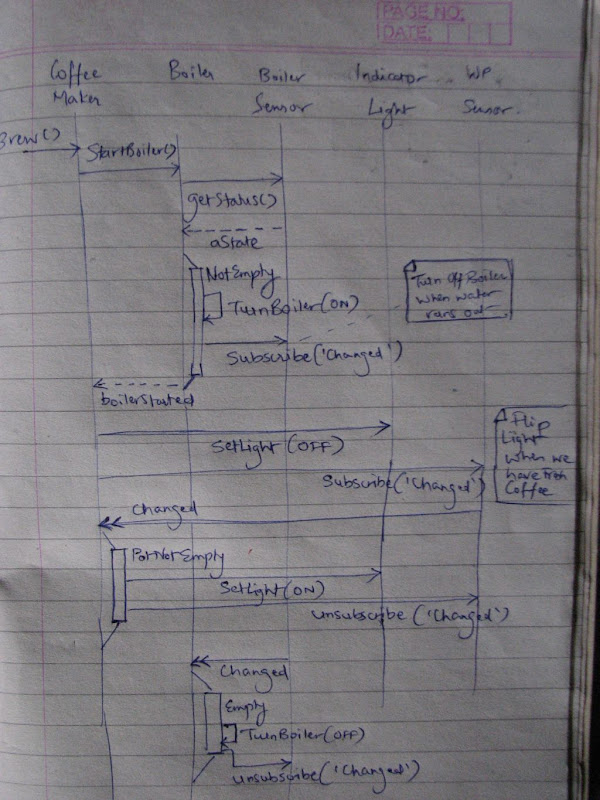 PAGE NO:
DATE:
Coffee Maker
Boiler
Boiler Sensor
Indicator Light
WP Sensor
Brew()
StartBoiler()
getStatus()
aState
NotEmpty
TurnBoiler(ON)
Turn Off Boiler
when water
runs out
Subscribe('Changed')
boilerStarted
SetLight(OFF)
Flip
Light
when we
have fresh
Coffee
Subscribe('Changed')
Changed
PotNotEmpty
SetLight(ON)
unsubscribe('Changed')
Changed
Empty
TurnBoiler(OFF)
unsubscribe('Changed')